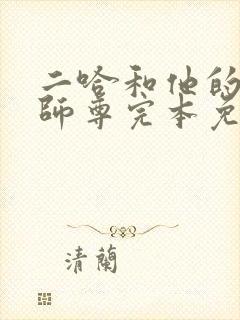 二哈和他的
師尊完本免
清蘭